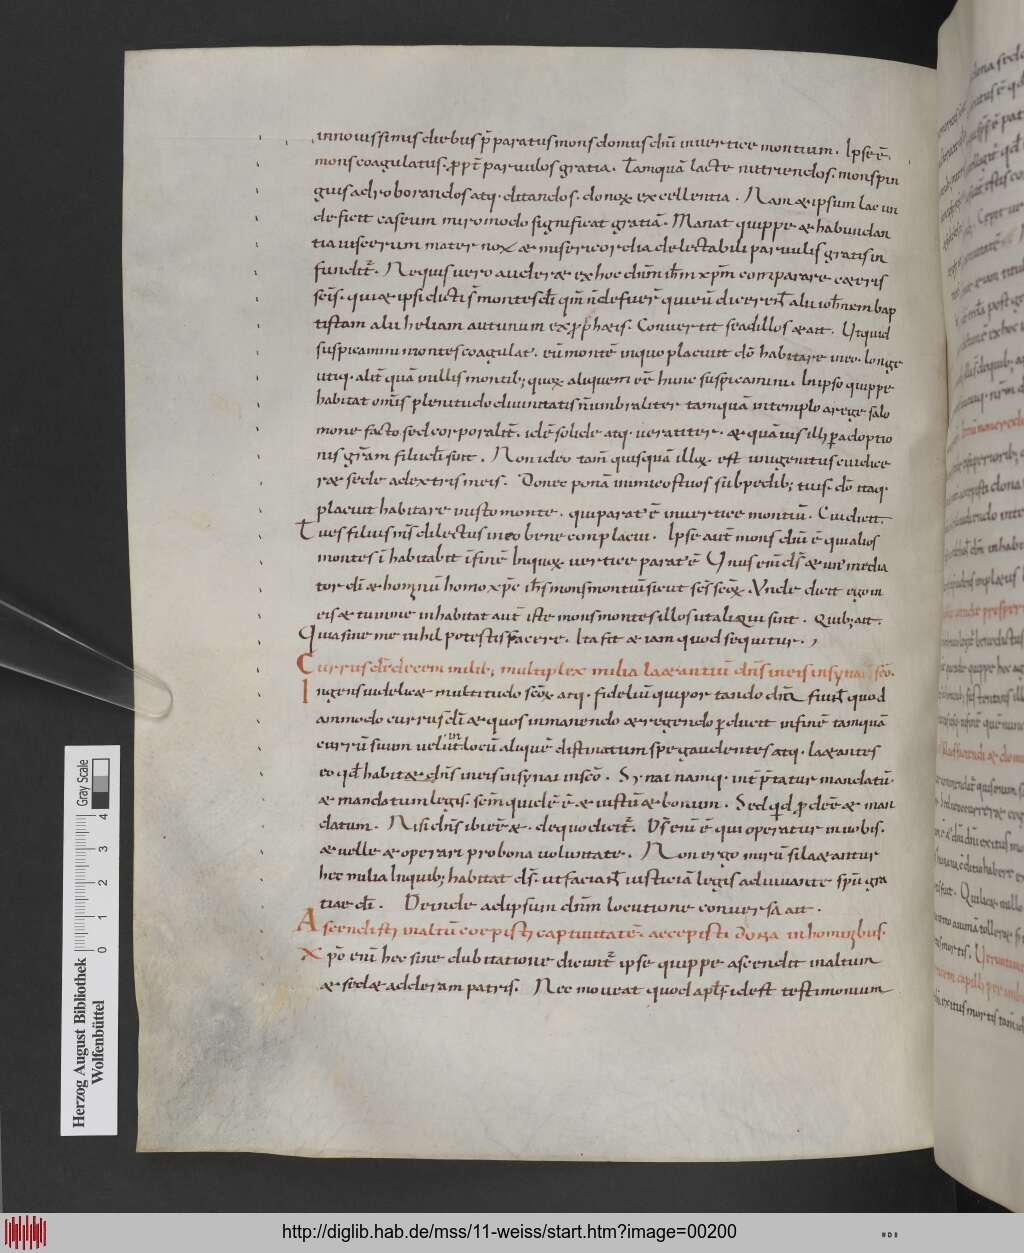 innouissimis diebus p̄paratus mons domus dn̄i inuertice montium. Ipse ē.
mons coagulatus. ppt̄ paruulos gratia. Tamquā lacte nutriendos. mons pin
guis ad roborandos atq. ditandos. donoꝝ excellentia. Nam & ipsum lac un
de fit caseum miro modo significat gratiā. Manat quippe ex habundan
tia uiscerum maternoꝝ & misericordia delectabili paruulis gratis in
fundit̄. Nequis uero auderæ ex hoc dn̄m ih̄m xp̄m comparare cæteris
sc̄is. quia & ipsi dicti s̄ montes dī qm̄ n̄ defuer̄ qui eū dicerent̄ alii ioh̄nem bap
tistam alii heliam aut unum ex prophetis. Conuertit se ad illos & ait. Utquid
suspicamini montes coagulat'. eū montē in quo placuit dō habitare in eo. Longe
utiq. alit̄ quā in illis montib; quoꝝ aliquem eē hunc suspicamini. In ipso quippe
habitat om̄is plenitudo diuinitatis n̄ umbraliter tamquā in templo a rege salo
mone facto sed corporalit̄. idē solide atq. ueraciter. & quāuis illi p adoptio
nis gr̄am filii dī sint. Non ideo tam̄ quisquā illoꝝ. est unigenitus cui dice
ræ sede a dextris meis. Donec ponā inimicos tuos sub pedib; tuis. dō itaq.
placuit habitare in isto monte. qui parat' ē in uertice montiū. Cui dicit.
Tu es filius m̄s dilectus in quo bene conplacui. Ipse aut̄ mons dn̄i ē qui alios
montes ī habitabit ī finē In quoꝝ uertice parat' ē Unus eni dī & un' media
tor dī & hominū homo xp̄c ih̄s mons montiū sicut sc̄s sc̄oꝝ. Unde dicit ego in
eis & tu in me inhabitat aut̄ iste mons montes illos ut alii qui sint. Quib; ait.
Quia sine me nihil potestis facere. Ita fit & iam quod sequitur.
Currus dī decem milib; multiplex milia lætantiū dn̄s in eis in syna in sc̄o.
Ingens uidelicæ multitudo sc̄oꝝ atq. fideliū qui portando dn̄m fiunt̄ quod
ammodo currus dī & quos inmanendo & regendo pducit in finē tamquā
currū suum uelut in locū aliquē distinatum spe gaudentes atq. lætantes
eo qd̄ habitæ dn̄s in eis in synai in sc̄o. Synai namq. int̄ p̄tatur mandatū.
& mandatum legis. sc̄m quidē ē & iustū & bonum. Sed qd̄ pdeē & man
datum. Nisi dn̄s ibi eē&. de quo dicit̄. Ds̄ eni ē qui operatur in uobis.
& uelle & operari pro bona uoluntate. Non ergo mirū si lætantur
hec milia In quib; habitat ds̄. ut faciant̄ iusticiā legis adiuuante sp̄u gra
tiæ dī. Deinde ad ipsum dn̄m locutione conuersa ait.
Ascendisti in altū coepisti captiuitatē. accepisti dona in hominibus.
Xpō eni hec sine dubitatione dicunt̄ ipse quippe ascendit in altum
& sedæ ad dexteram patris. Nec moueat quod apl̄s idest testimonium
Herzog August Bibliothek
Wolfenbüttel
0 1 2 3 4
Gray Scale
http://diglib.hab.de/mss/11-weiss/start.htm?image=00200